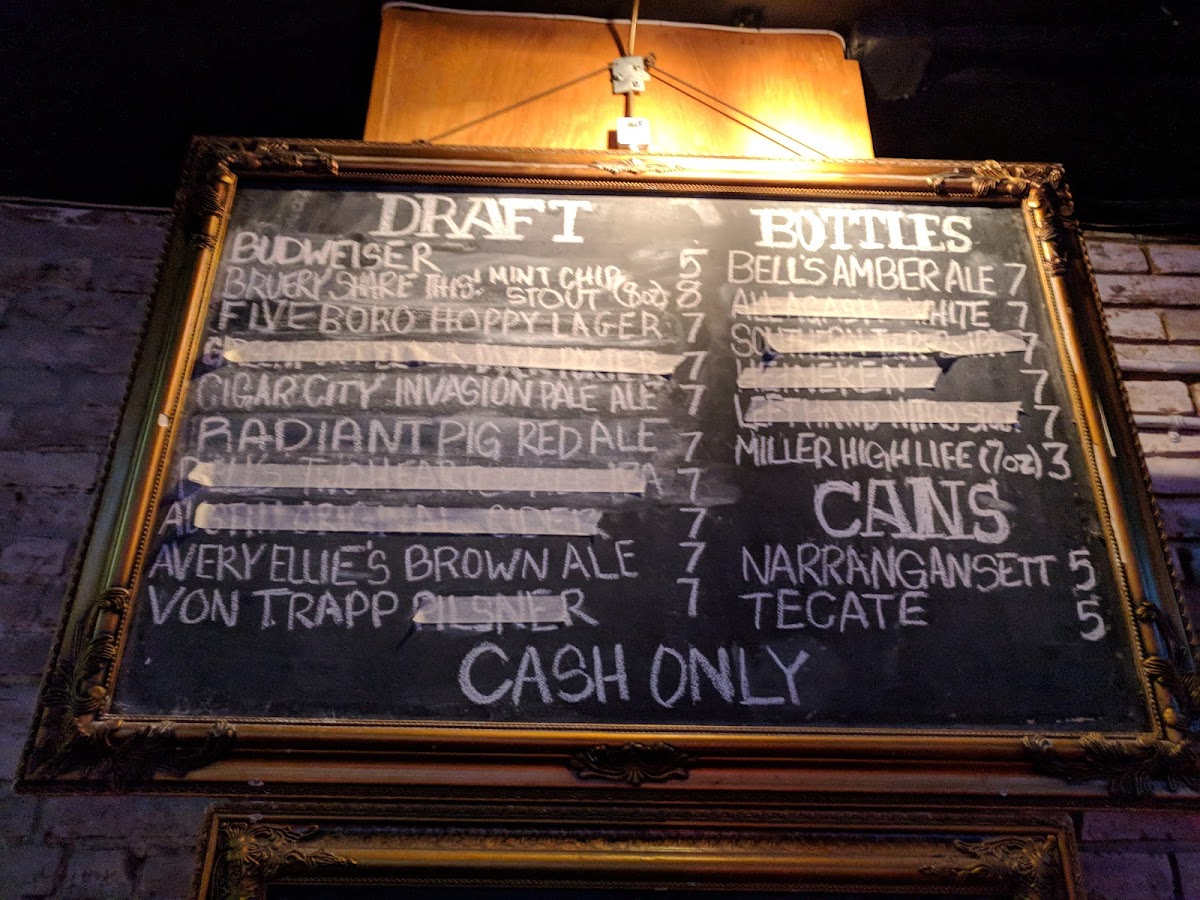 DRAFT
BUDWEISER 5
BRUERY SHARE THIS! MINT CHIP
STOUT (8oz) 8
FIVE BORO HOPPY LAGER 7
7
CIGAR CITY INVASION PALE ALE 7
RADIANT PIG RED ALE 7
IPA 7
7
AVERY ELLIE'S BROWN ALE 7
VON TRAPP PILSNER 7
BOTTLES
BELL'S AMBER ALE 7
ALLAGASH WHITE 7
7
HEINEKEN 7
LEFT HAND NITRO 7
MILLER HIGH LIFE (7oz) 3
CANS
NARRANGANSETT 5
TECATE 5
CASH ONLY